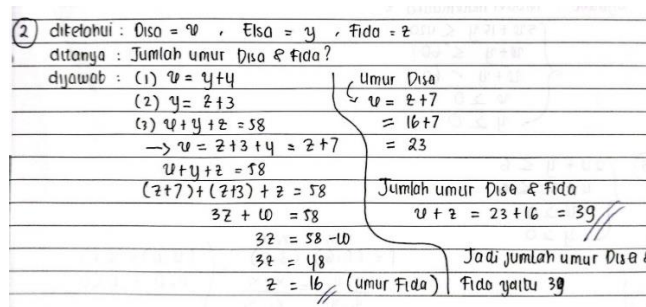 2 diketahui : Disa = x , Elsa = y , Fida = z
ditanya : Jumlah umur Disa & Fida?
dijawab : (1) x = y+4
(2) y = z+3
(3) x+y+z = 58
→ x = z+3+4 = z+7
x+y+z = 58
(z+7)+(z+3)+z = 58
3z + 10 = 58
3z = 58 -10
3z = 48
z = 16 (umur Fida)
Umur Disa
↳ x = z+7
= 16+7
= 23
Jumlah umur Disa & Fida
x + z = 23+16 = 39
Jadi jumlah umur Disa &
Fida yaitu 39